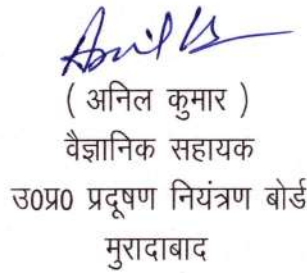 ( अनिल कुमार )
वैज्ञानिक सहायक
उ0प्र0 प्रदूषण नियंत्रण बोर्ड
मुरादाबाद